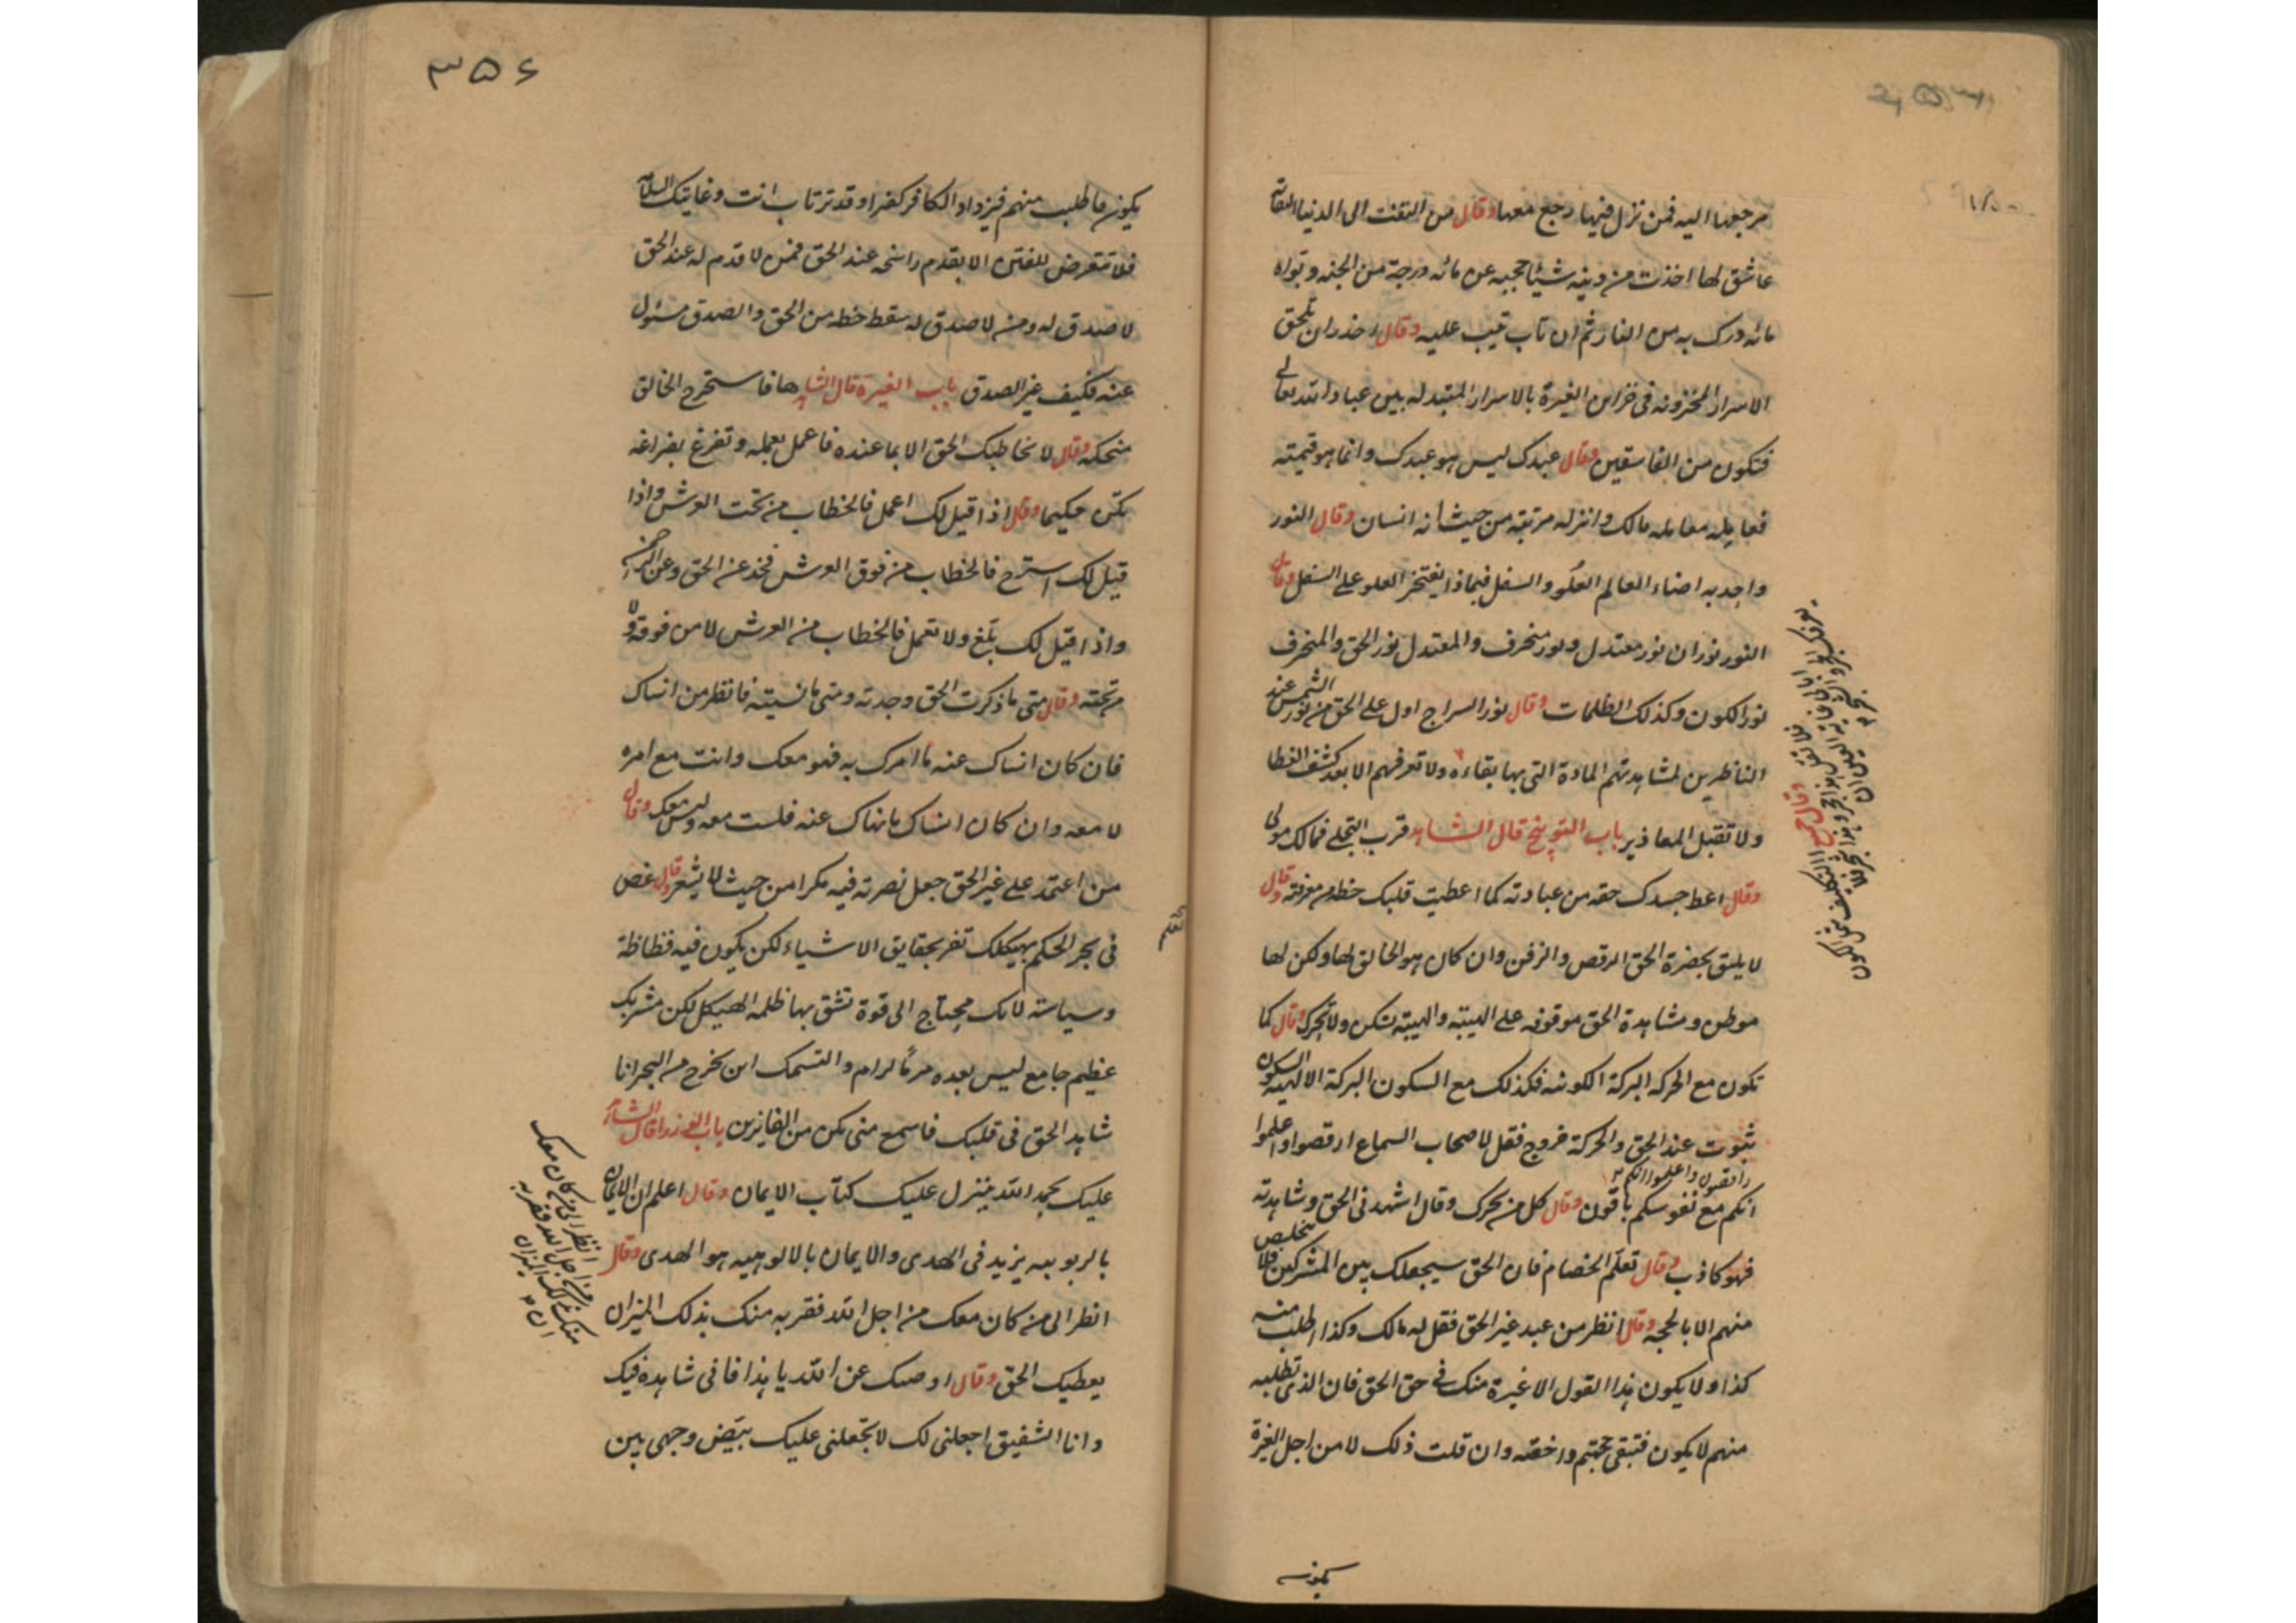 مرجعها اليه فمن نزل فيها رجع معها وقال من التفت الى الدنيا التفاتة
عاشق لها اخذت من دينه شيئا حجبه عن مائه درجة من الجنه وتواه
مائه درك به من النار ثم ان تاب تيب عليه وقال احذر ان تلحق
الاسرار المخزونه فى خزاين الغيرة بالاسرار المتبدله بين عباد الله تعالى
فتكون من الفاسقين وقال عبدك ليس هو عبدك وانما هو قيمته
فعامله معامله مالك وانزله مرتبته من حيث انه انسان وقال النور
واحد به اضاء العالم العلو والسفل فبماذا يفتخر العلو على السفل وقال
النور نوران نور معتدل ونور منحرف والمعتدل نور الحق والمنحرف
نور الكون وكذلك الظلمات وقال نور السراج اول على الحق من نور الشمس عند
الناظرين لمشاهدتهم المادة التى بها بقاءه ولا تعرفهم الا بعد كشف الغطا
ولا تقبل المعاذير باب التوبيخ قال الشاهد قرب التجلى فمالك مولى
وقال اعط جسدك حقه من عبادته كما اعطيت قلبك حظه من معرفته وقال
لا يليق بحضرة الحق الرقص والزفن وان كان هو الخالق لها ولكن لها
موطن ومشاهدة الحق موقوفه على الهيبته والهيبته تسكن ولا تحرك وقال كما
تكون مع الحركه البركة الكونيه فكذلك مع السكون البركة الالهيه السكون
ثبوت عند الحق والحركة خروج فقل لاصحاب السماع ارقصوا واعلموا
راقصون واعلموا انكم
انكم مع نفوسكم باقون وقال كل من تحرك وقال اشهدنى الحق وشاهدته
فهو كاذب وقال تعلم الخصام فان الحق سيجعلك بين المشركين فلا تتخلص
منهم الا بالحجه وقال انظر من عبد غير الحق فقل له مالك وكذا اطلب منه
كذا ولا يكون هذا القول الا غيرة منك فى حق الحق فان الذى تطلبه
منهم لا يكون فتبقى حجتهم داحضه وان قلت ذلك لا من اجل الغيرة
يكون
٣٥٦
يكون ما طلب منهم فيزداد الكافر كفرا وقد ترتاب انت وغايتك السلامه
فلا تتعرض للفتن الا بقدم راسخه عند الحق فمن لا قدم له عند الحق
لا صدق له ومن لا صدق له سقط حظه من الحق والصدق مسئول
عنه فكيف غير الصدق باب الغيرة قال الشاهد هافا ستخرج الخالق
منحكه وقال لا تخاطبك الحق الا بما عنده فاعمل بعمله وتفرغ بفراغه
تكن حكيما وقال اذا قيل لك اعمل فالخطاب من تحت العرش واذا
قيل لك استرح فالخطاب من فوق العرش فخذ عن الحق وعن الرحمن
واذا قيل لك بلغ ولا تعمل فالخطاب من العرش لا من فوقه ولا
من تحته وقال متى ما ذكرت الحق وجدته ومتى ما نسيته فانظر من انساك
فان كان انساك عنه ما امرك به فهو معك وانت مع امره
لا معه وان كان انساك ما نهاك عنه فلست معه وليس معك وقال
من اعتمد على غير الحق جعل نصرته فيه مكرا من حيث لا يشعر وقال غص
فى بحر الحكم بهيكلك تفز بحقايق الاشياء لكن يكون فيه فظاظة
وسياسته لانك محتاج الى قوة تشق بها ظلمه الهيكل لكن مشربك
عظيم جامع ليس بعده مرمًا لرام والتسمك ان يخرج من البحر انا
شاهد الحق فى قلبك فاسمع منى تكن من الفايزين باب الوزرا قال الشاهد
عليك بحمد الله ينزل عليك كتاب الايمان وقال اعلم ان الايمان
بالربوبيه يزيد فى الهدى والايمان بالالوهيه هو الهدى وقال
انظر الى من كان معك من اجل الله فقربه منك بذلك الميزان
يعطيك الحق وقال اوصيك عن الله يا هذا فانى شاهدة فيك
وانا الشفيق اجعلنى لك لا تجعلنى عليك بيّض وجهى بين
انظر الى من كان معك
من اجل الله فقربه
منك بذلك الميزان